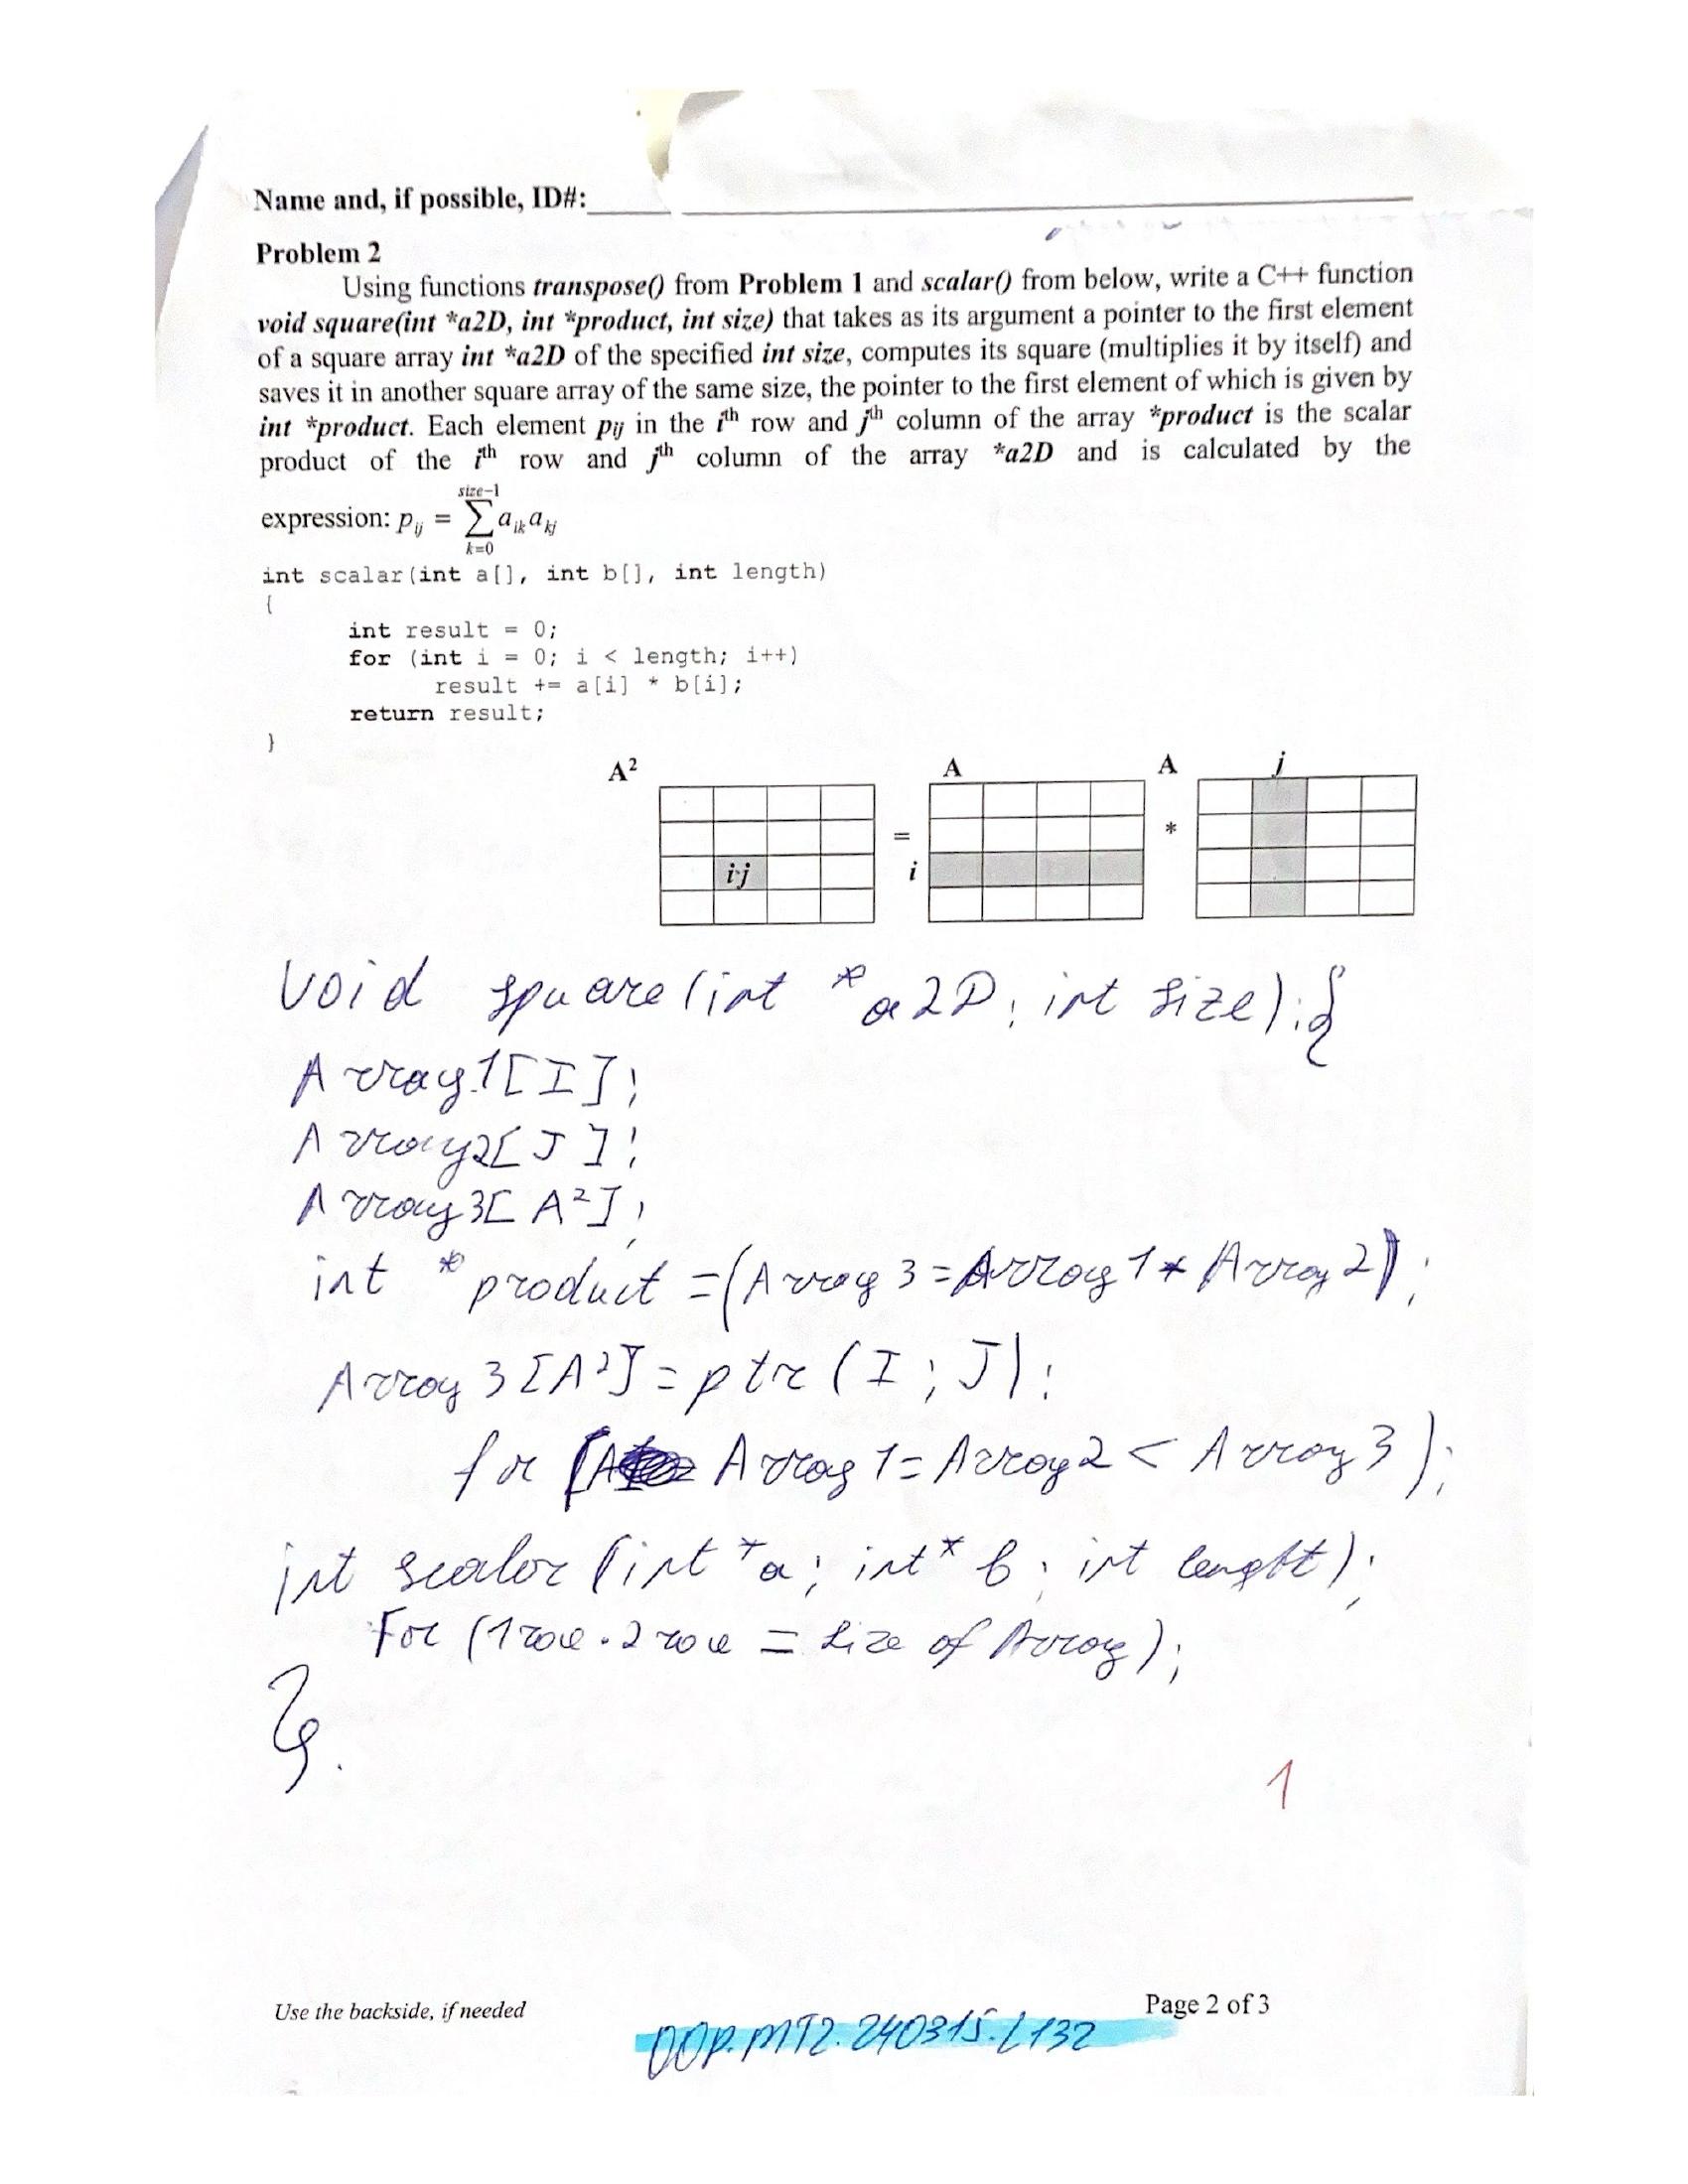 Name and, if possible, ID#:
Problem 2
Using functions transpose() from Problem 1 and scalar() from below, write a C++ function
void square(int *a2D, int *product, int size) that takes as its argument a pointer to the first element
of a square array int *a2D of the specified int size, computes its square (multiplies it by itself) and
saves it in another square array of the same size, the pointer to the first element of which is given by
int *product. Each element pij in the ith row and jth column of the array *product is the scalar
product of the ith row and jth column of the array *a2D and is calculated by the
size-1
expression: pij = ∑ aik akj
k=0
int scalar(int a[], int b[], int length)
{
int result = 0;
for (int i = 0; i < length; i++)
result += a[i] * b[i];
return result;
}
A² A A j
= *
i·j i
void square (int *a2D; int size);{
Array1[I];
Array2[J];
Array3[A²];
int *product =(Array 3 = Array 1 * Array 2);
Array 3 [A²] = ptr (I ; J);
for ( Array 1 = Array 2 < Array 3 );
int scalar (int *a; int* b; int lenght);
For (1 row . 2 row = Size of Array);
}.
1
Use the backside, if needed
Page 2 of 3
OOP.MT2.240315.L132